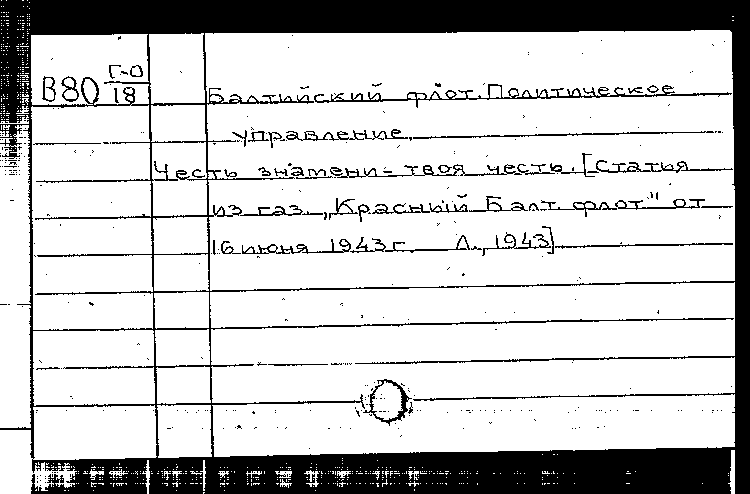 В80 Г-0/18
Балтийский флот. Политическое
управление.
Честь знамени - твоя честь. [Статья
из газ. „Красный Балт. флот" от
16 июня 1943 г. Л., 1943]